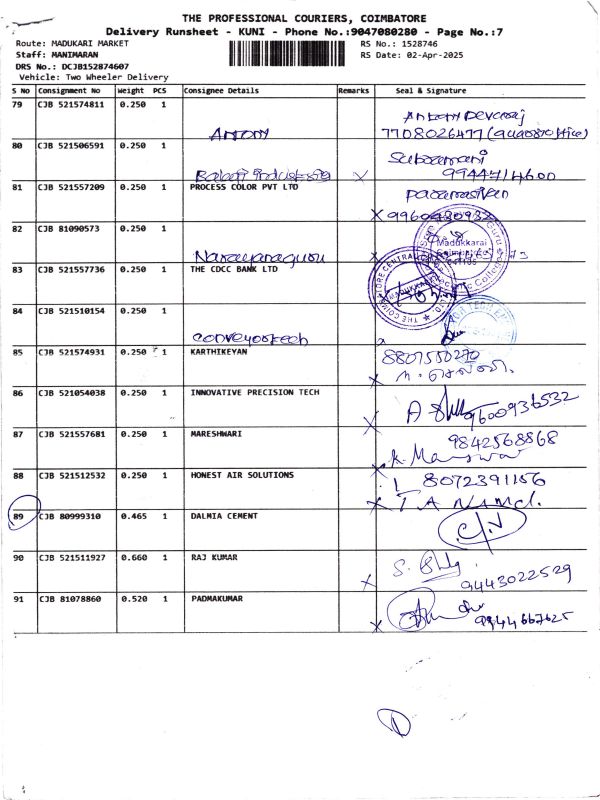 THE PROFESSIONAL COURIERS, COIMBATORE
Delivery Runsheet - KUNI - Phone No.:9047080280 - Page No.:7
Route: MADUKARI MARKET RS No.: 1528746
Staff: MANIMARAN RS Date: 02-Apr-2025
DRS No.: DCJB152874607
Vehicle: Two Wheeler Delivery
S No Consignment No Weight PCS Consignee Details Remarks Seal & Signature
79 CJB 521574811 0.250 1 Antony Antony Devaraj
7708026477
80 CJB 521506591 0.250 1 Balaji Industries Subramani
9944714600
81 CJB 521557209 0.250 1 PROCESS COLOR PVT LTD Paramasivan
82 CJB 81090573 0.250 1 Narayanaguru
Madukkarai
83 CJB 521557736 0.250 1 THE CDCC BANK LTD
84 CJB 521510154 0.250 1 Conveyortech
85 CJB 521574931 0.250 1 KARTHIKEYAN
86 CJB 521054038 0.250 1 INNOVATIVE PRECISION TECH 9600936532
87 CJB 521557681 0.250 1 MARESHWARI 9842568868
88 CJB 521512532 0.250 1 HONEST AIR SOLUTIONS 8072391156
89 CJB 80999310 0.465 1 DALMIA CEMENT
90 CJB 521511927 0.660 1 RAJ KUMAR
9443022529
91 CJB 81078860 0.520 1 PADMAKUMAR
9344667625